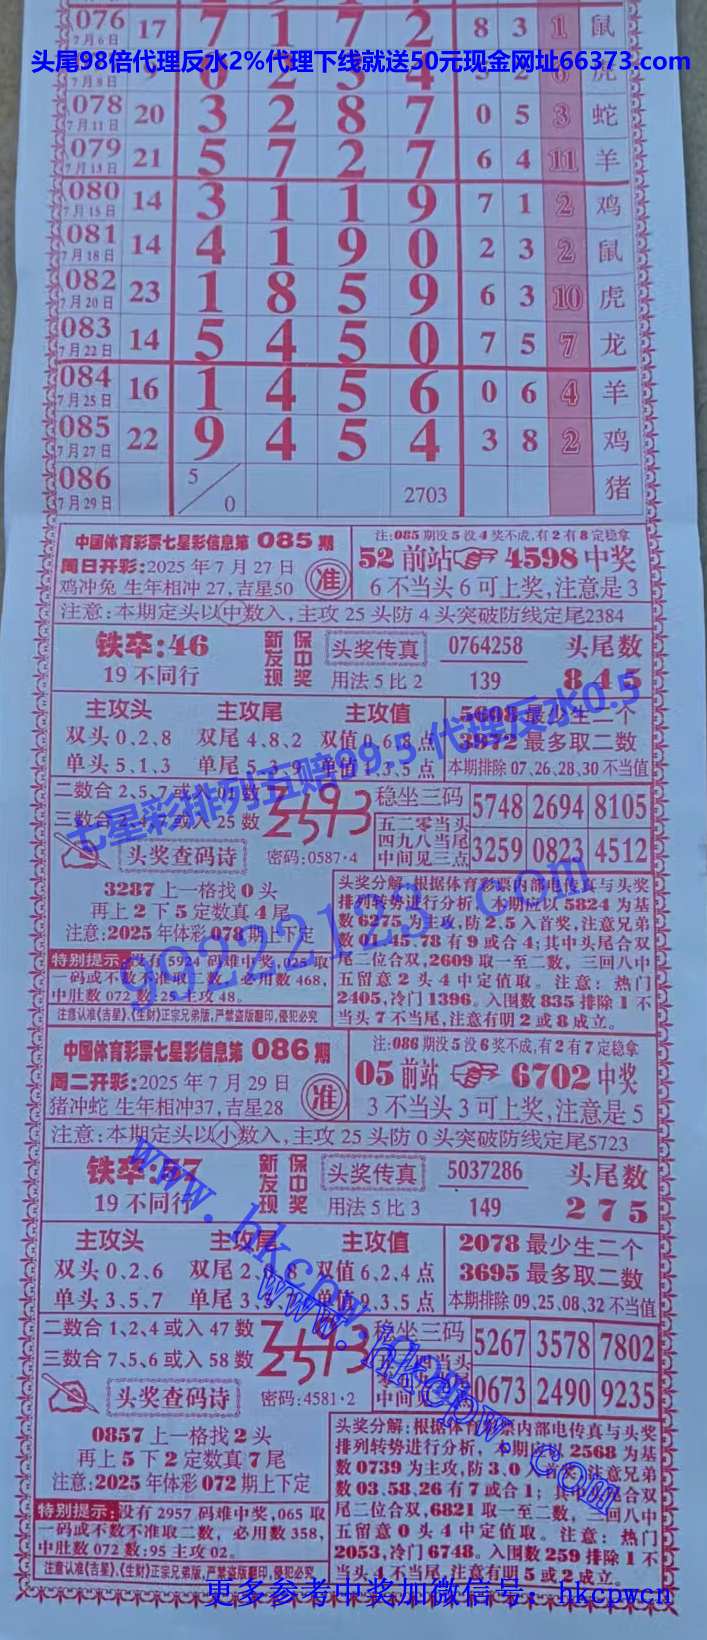 076 7月6日 17 7 1 7 2 8 3 1 鼠
头尾98倍代理反水2%代理下线就送50元现金网址66373.com
078 7月11日 20 3 2 8 7 0 5 3 蛇
079 7月13日 21 5 7 2 7 6 4 11 羊
080 7月15日 14 3 1 1 9 7 1 2 鸡
081 7月18日 14 4 1 9 0 2 3 2 鼠
082 7月20日 23 1 8 5 9 6 3 10 虎
083 7月22日 14 5 4 5 0 7 5 7 龙
084 7月25日 16 1 4 5 6 0 6 4 羊
085 7月27日 22 9 4 5 4 3 8 2 鸡
086 7月29日 5/0 2703 猪
中国体育彩票七星彩信息第 085 期
周日开彩:2025年7月27日
鸡冲兔 生年相冲27,吉星50
准
注:085期没5没4奖不成,有2有8定稳拿
52 前站 4598 中奖
6不当头6可上奖,注意是3
注意:本期定头以中数入,主攻25头防4头突破防线定尾2384
铁卒:46
19不同行
新发现 保中奖
头奖传真 0764258 头尾数
用法5比2 139 845
主攻头 主攻尾 主攻值
双头0,2,8 双尾4,8,2 双值0,6,8点
单头5,1,3
5698最少生二个
3872最多取二数
本期排除07,26,28,30不当值
七星彩排列五赔99.5 代理反水0.5
稳坐三码
五二零当头
四九八当尾
中间见三点
5748 2694 8105
3259 0823 4512
头奖查码诗 密码:0587·4
3287上一格找0头
再上2下5定数真4尾
注意:2025年体彩078期上下定
特别提示:没有5924码难中奖,025取
一码或不数不准取二数,必用数468,
中肚数072数:25主攻48。
注意认准《吉星》、《生财》正宗兄弟版,严禁盗版翻印,侵犯必究
头奖分解:根据体育彩票内部电传真与头奖
排列转势进行分析,本期应以5824为基
数6275为主攻,防2.5入首奖,注意兄弟
数01.45.78有9或合4;其中头尾合双
尾二位合双,2609取一至二数,三回八中
五留意2头4中定值取。注意:热门
2405,冷门1396。入围数835排除1不
当头7不当尾,注意有明2或8成立。
中国体育彩票七星彩信息第 086 期
周二开彩:2025年7月29日
猪冲蛇 生年相冲37,吉星28
准
注:086期没5没6奖不成,有2有7定稳拿
05 前站 6702 中奖
3不当头3可上奖,注意是5
注意:本期定头以小数入,主攻25头防0头突破防线定尾5723
铁卒:57
19不同行
新发现 保中奖
头奖传真 5037286 头尾数
用法5比3 149 275
主攻头 主攻尾 主攻值
双头0,2,6 双值6,2,4点
单头3,5,7 单值9,3,5点
2078最少生二个
3695最多取二数
本期排除09,25,08,32不当值
二数合1,2,4或入47数
三数合7,5,6或入58数
稳坐三码
5267 3578 7802
0673 2490 9235
头奖查码诗 密码:4581·2
0857上一格找2头
再上5下2定数真7尾
注意:2025年体彩072期上下定
特别提示:没有2957码难中奖,065取
一码或不数不准取二数,必用数358,
中肚数072数:95主攻02。
注意认准《吉星》、《生财》正宗兄弟版,严禁盗版翻印,侵犯必究
头奖分解:根据体育彩票内部电传真与头奖
排列转势进行分析,本期应以2568为基
数0739为主攻,防3.0入首奖,注意兄弟
数03.58.26有7或合1;其中头尾合双
尾二位合双,6821取一至二数,三回八中
五留意0头4中定值取。注意:热门
2053,冷门6748。入围数259排除1不
当头4不当尾,注意有明5或2成立。
www.hkcpw.com
www.hkcpw.com
更多参考中奖加微信号:hkcpwcn